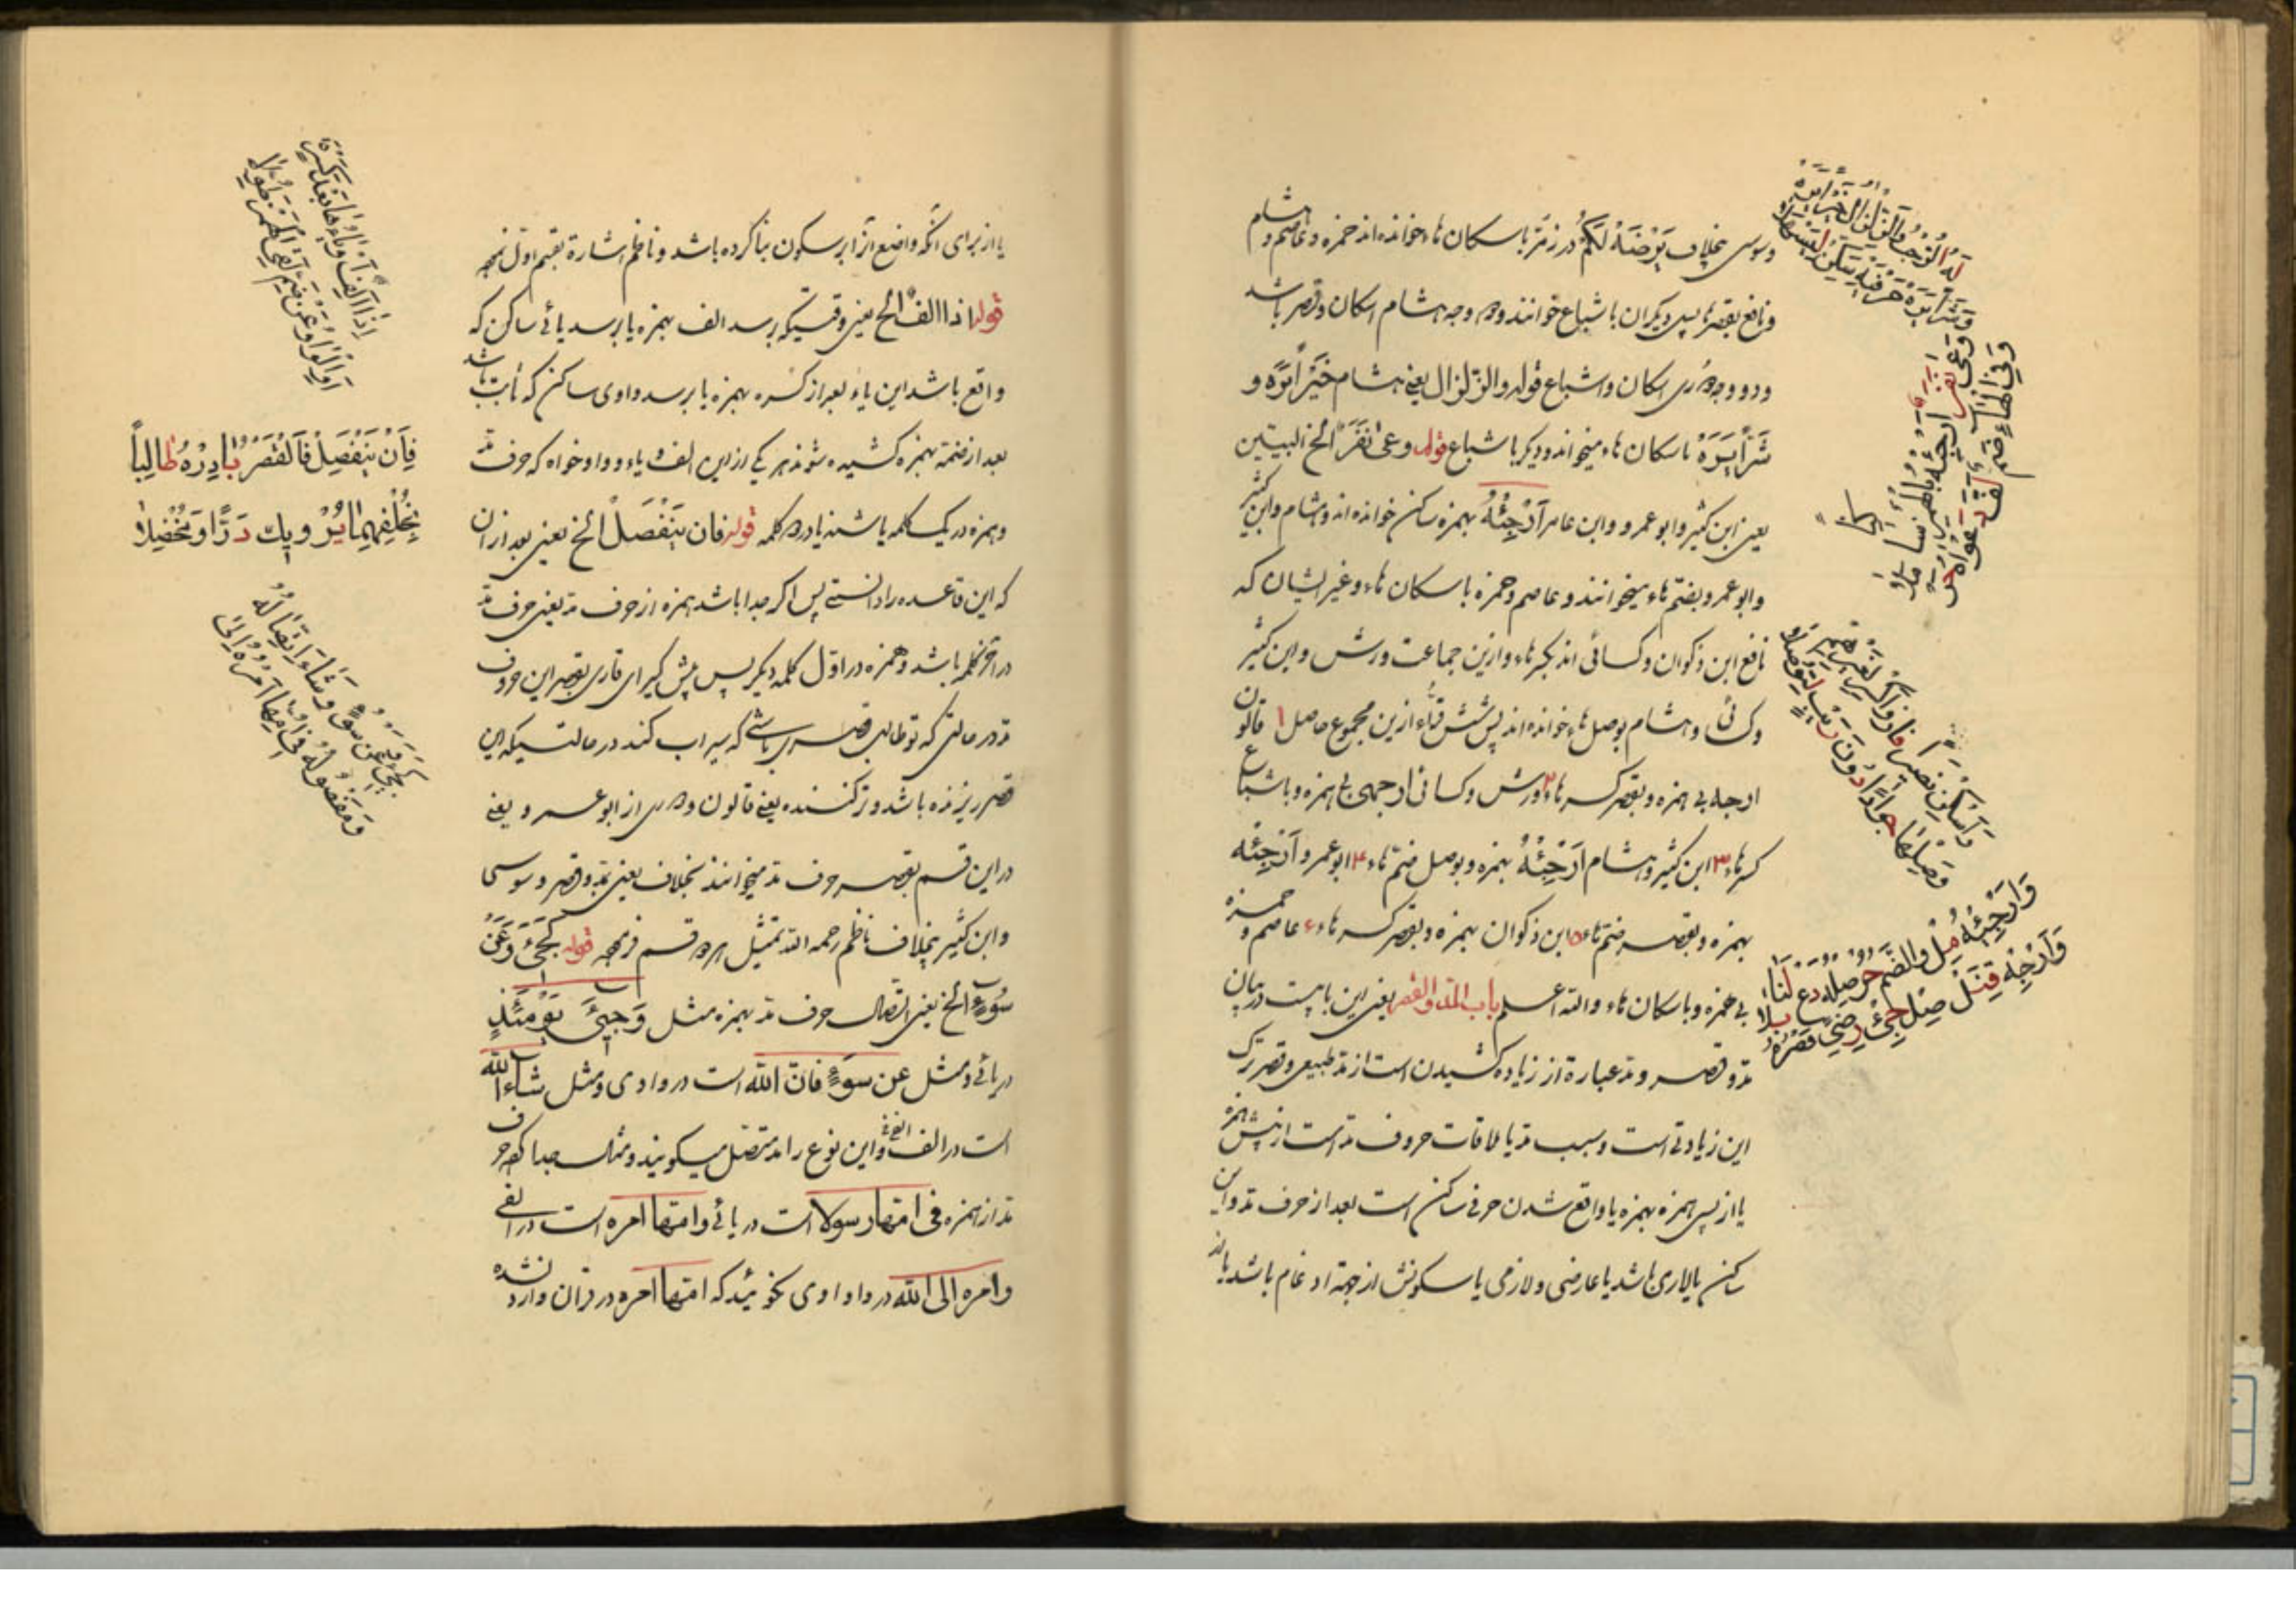 وسوسی بخلاف یَرْضَهُ لَکُمْ در زمر باسکان هاء خوانده‌اند حمزه و عاصم و هشام
و نافع بقصر هاء پس دیگران باشباع خوانند و وجه هشام اسکان و قصر باشد
و دو وجه دوری اسکان و اشباع قوله والزلزال یعنی هشام خَیْرًا یَرَه و
شَرًّا یَرَهْ باسکان هاء میخواند و دیگر باشباع قوله وعی نَفَرٌ الخ البیتین
یعنی ابن کثیر و ابوعمرو و ابن عامر اَرْجِئْهُ بهمزه ساکن خوانده‌اند و هشام و ابن کثیر
و ابوعمرو بضمّ هاء میخوانند و عاصم و حمزه باسکان هاء و غیر ایشان که
نافع ابن ذکوان و کسائی اند بکسر هاء و ازین جماعت ورش و ابن کثیر
و کسائی و هشام بوصل هاء خوانده‌اند پس شش قراء ازین مجموع حاصل ۱ قالون
ارجه بی همزه و بقصر کسر هاء ۲ ورش و کسائی ارجهی بی همزه و باشباع
کسر هاء ۳ ابن کثیر و هشام اَرْجِئْهُ بهمزه و بوصل ضم هاء ۴ ابوعمرو اَرْجِئْهُ
بهمزه و بقصر ضم هاء ۵ ابن ذکوان بهمزه و بقصر کسر هاء ۶ عاصم و حمزه
بی همزه و باسکان هاء والله اعلم باب المد والقصر یعنی این بابیست در بیان
مد و قصر و مد عبارة از زیاده کشیدن است از مد طبیعی و قصر ترک
این زیادتی است و سبب مد یا ملاقات حروف مد است از پیش همزه
یا از پس همزه بهمزه یا واقع شدن حرفی ساکن است بعد از حرف مد و این
ساکن یا لازمی باشد یا عارضی و لازمی یا سکونش از جهة ادغام باشد یا نه
لَهُ الرُّحْبُ وَالزِّلْزَالُ خَیْرًا یَرَهْ
وَشَرًّا یَرَهْ حَرْفَیْهِ سَکِّنْ لِیَسْهُلَا
وَعَی نَفَرٌ اَرْجِئْهُ بِالْهَمْزِ سَاکِنًا
وَفِی الْهَاءِ ضَمٌّ لَفَّ دَعْوَاهُ حَرْمَلَا
وَاَسْکِنْ نَصِیرًا فَازَ وَاکْسِرْ لِغَیْرِهِمْ
وَصِلْهَا جَوَادًا دُونَ رَیْبٍ لِتُوصَلَا
یا از برای آنکه واضع از ابر سکون بنا کرده باشد و ناظم اشارة بقسم اول نمود
قوله اذا الف الخ یعنی وقتیکه برسد الف بهمزه یا برسد یائی ساکن که
واقع باشد این یاء بعد از کسره بهمزه یا برسد واوی ساکن که ثابت باشد
بعد از ضمّه بهمزه کشیده شوند هر یکی ازین الف و یاء و واو خواه که حرف مد
و همزه در یک کلمه باشند یا در دو کلمه قوله فان یَنْفَصِلْ الخ یعنی بعد از آن
که این قاعده را دانستی پس اگر جدا باشد همزه از حرف مد یعنی حرف مد
در آخر کلمه باشد و همزه در اوّل کلمه دیگر پس پیش گیر ای قاری بقصر این حروف
مد در حالتی که تو طالب قصری باشی که سیراب کند در حالتیکه این
قصر ریزنده باشد و تر کننده یعنی قالون و دوری از ابوعمرو یعنی
در این قسم بقصر حرف مد میخوانند بخلاف یعنی بمد و قصر و سوسی
و ابن کثیر بیخلاف ناظم رحمه الله تمثیل هر دو قسم فرمود قوله کَجِیءَ وَعَنْ
سُوءٍ الخ یعنی اتّصال حرف مد بهمزه مثل وَجِیءَ یَوْمَئِذٍ
در یائی و مثل عن سوءٍ فانّ الله است در واوی و مثل شاء الله
است در الفی و این نوع را مد متصل میگویند و مثال جدا که حرف
مد از همزه فی امّها رسولا است در یائی و امّها امره است در الفی
و امره الی الله در واوی نگوئید که امّها امره در قرآن وارد نشده
اِذَا اَلِفٌ اَوْ یَاؤُهَا بَعْدَ کَسْرَةٍ
اَوِ الْوَاوُ عَنْ ضَمٍّ لَقِی الْهَمْزَ طُوِّلَا
فَاِنْ یَنْفَصِلْ فَالْقَصْرُ بَادِرْهُ طَالِبًا
بِخُلْفِهِمَا یُرْوِیکَ دَرًّا وَمُخْضَلَا
کَجِیءَ وَعَنْ سُوءٍ وَشَاءَ اتِّصَالُهُ
وَمَفْصُولُهُ فِی اُمِّهَا اَمْرُهُ اِلَی